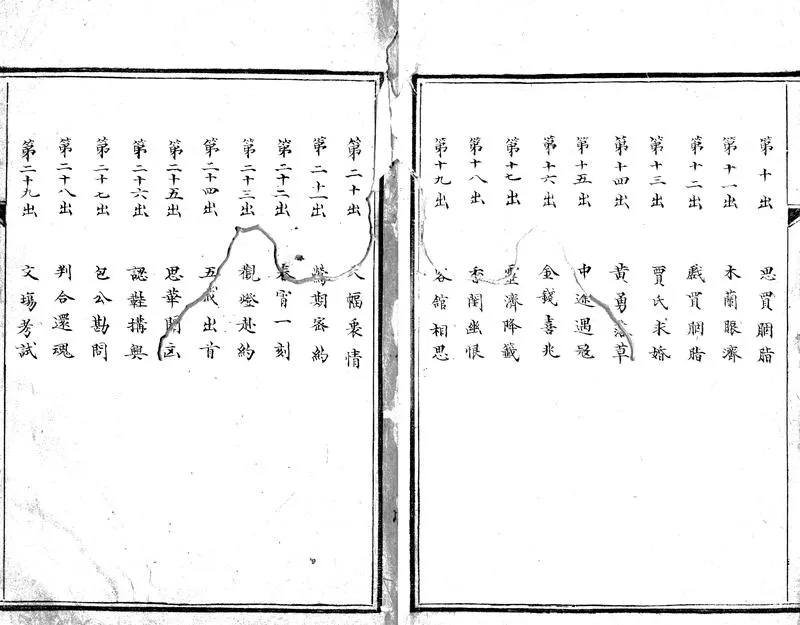 第十出 思買胭脂
第十一出 木蘭賑濟
第十二出 戲買胭脂
第十三出 賈氏求婚
第十四出 黃勇落草
第十五出 中途遇寇
第十六出 金錢喜兆
第十七出 靈濟降籤
第十八出 香閨幽恨
第十九出 客舘相思
第二十出 尺幅裹情
第二十一出 鶯期密約
第二十二出 春宵一刻
第二十三出 觀燈赴約
第二十四出 五戒出首
第二十五出 思華問凶
第二十六出 認鞋搆輿
第二十七出 包公勘問
第二十八出 判合還魂
第二十九出 文塲考試